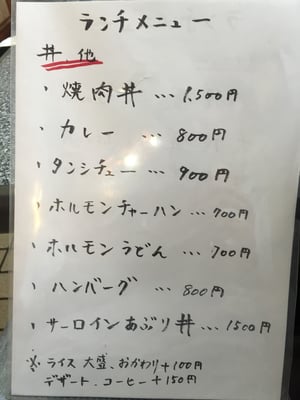 ランチメニュー
丼、他
・焼肉丼 … 1,500円
・カレー … 800円
・タンシチュー … 900円
・ホルモンチャーハン … 700円
・ホルモンうどん … 700円
・ハンバーグ … 800円
・サーロインあぶり丼 … 1500円
※ライス大盛、おかわり+100円
デザート、コーヒー+150円